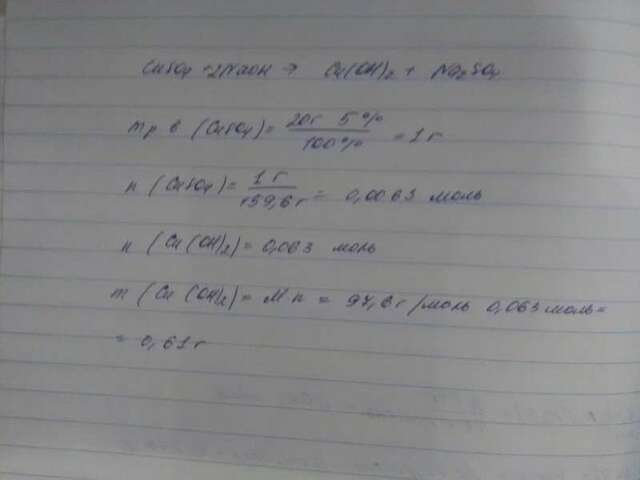 CuSO4 + 2NaOH → Cu(OH)2 + Na2SO4
m р.в (CuSO4) = 20г 5% / 100% = 1 г
n (CuSO4) = 1 г / 159,6 г = 0,0063 моль
n (Cu(OH)2) = 0,063 моль
m (Cu(OH)2) = M n = 97,6 г/моль 0,063 моль =
= 0,61 г